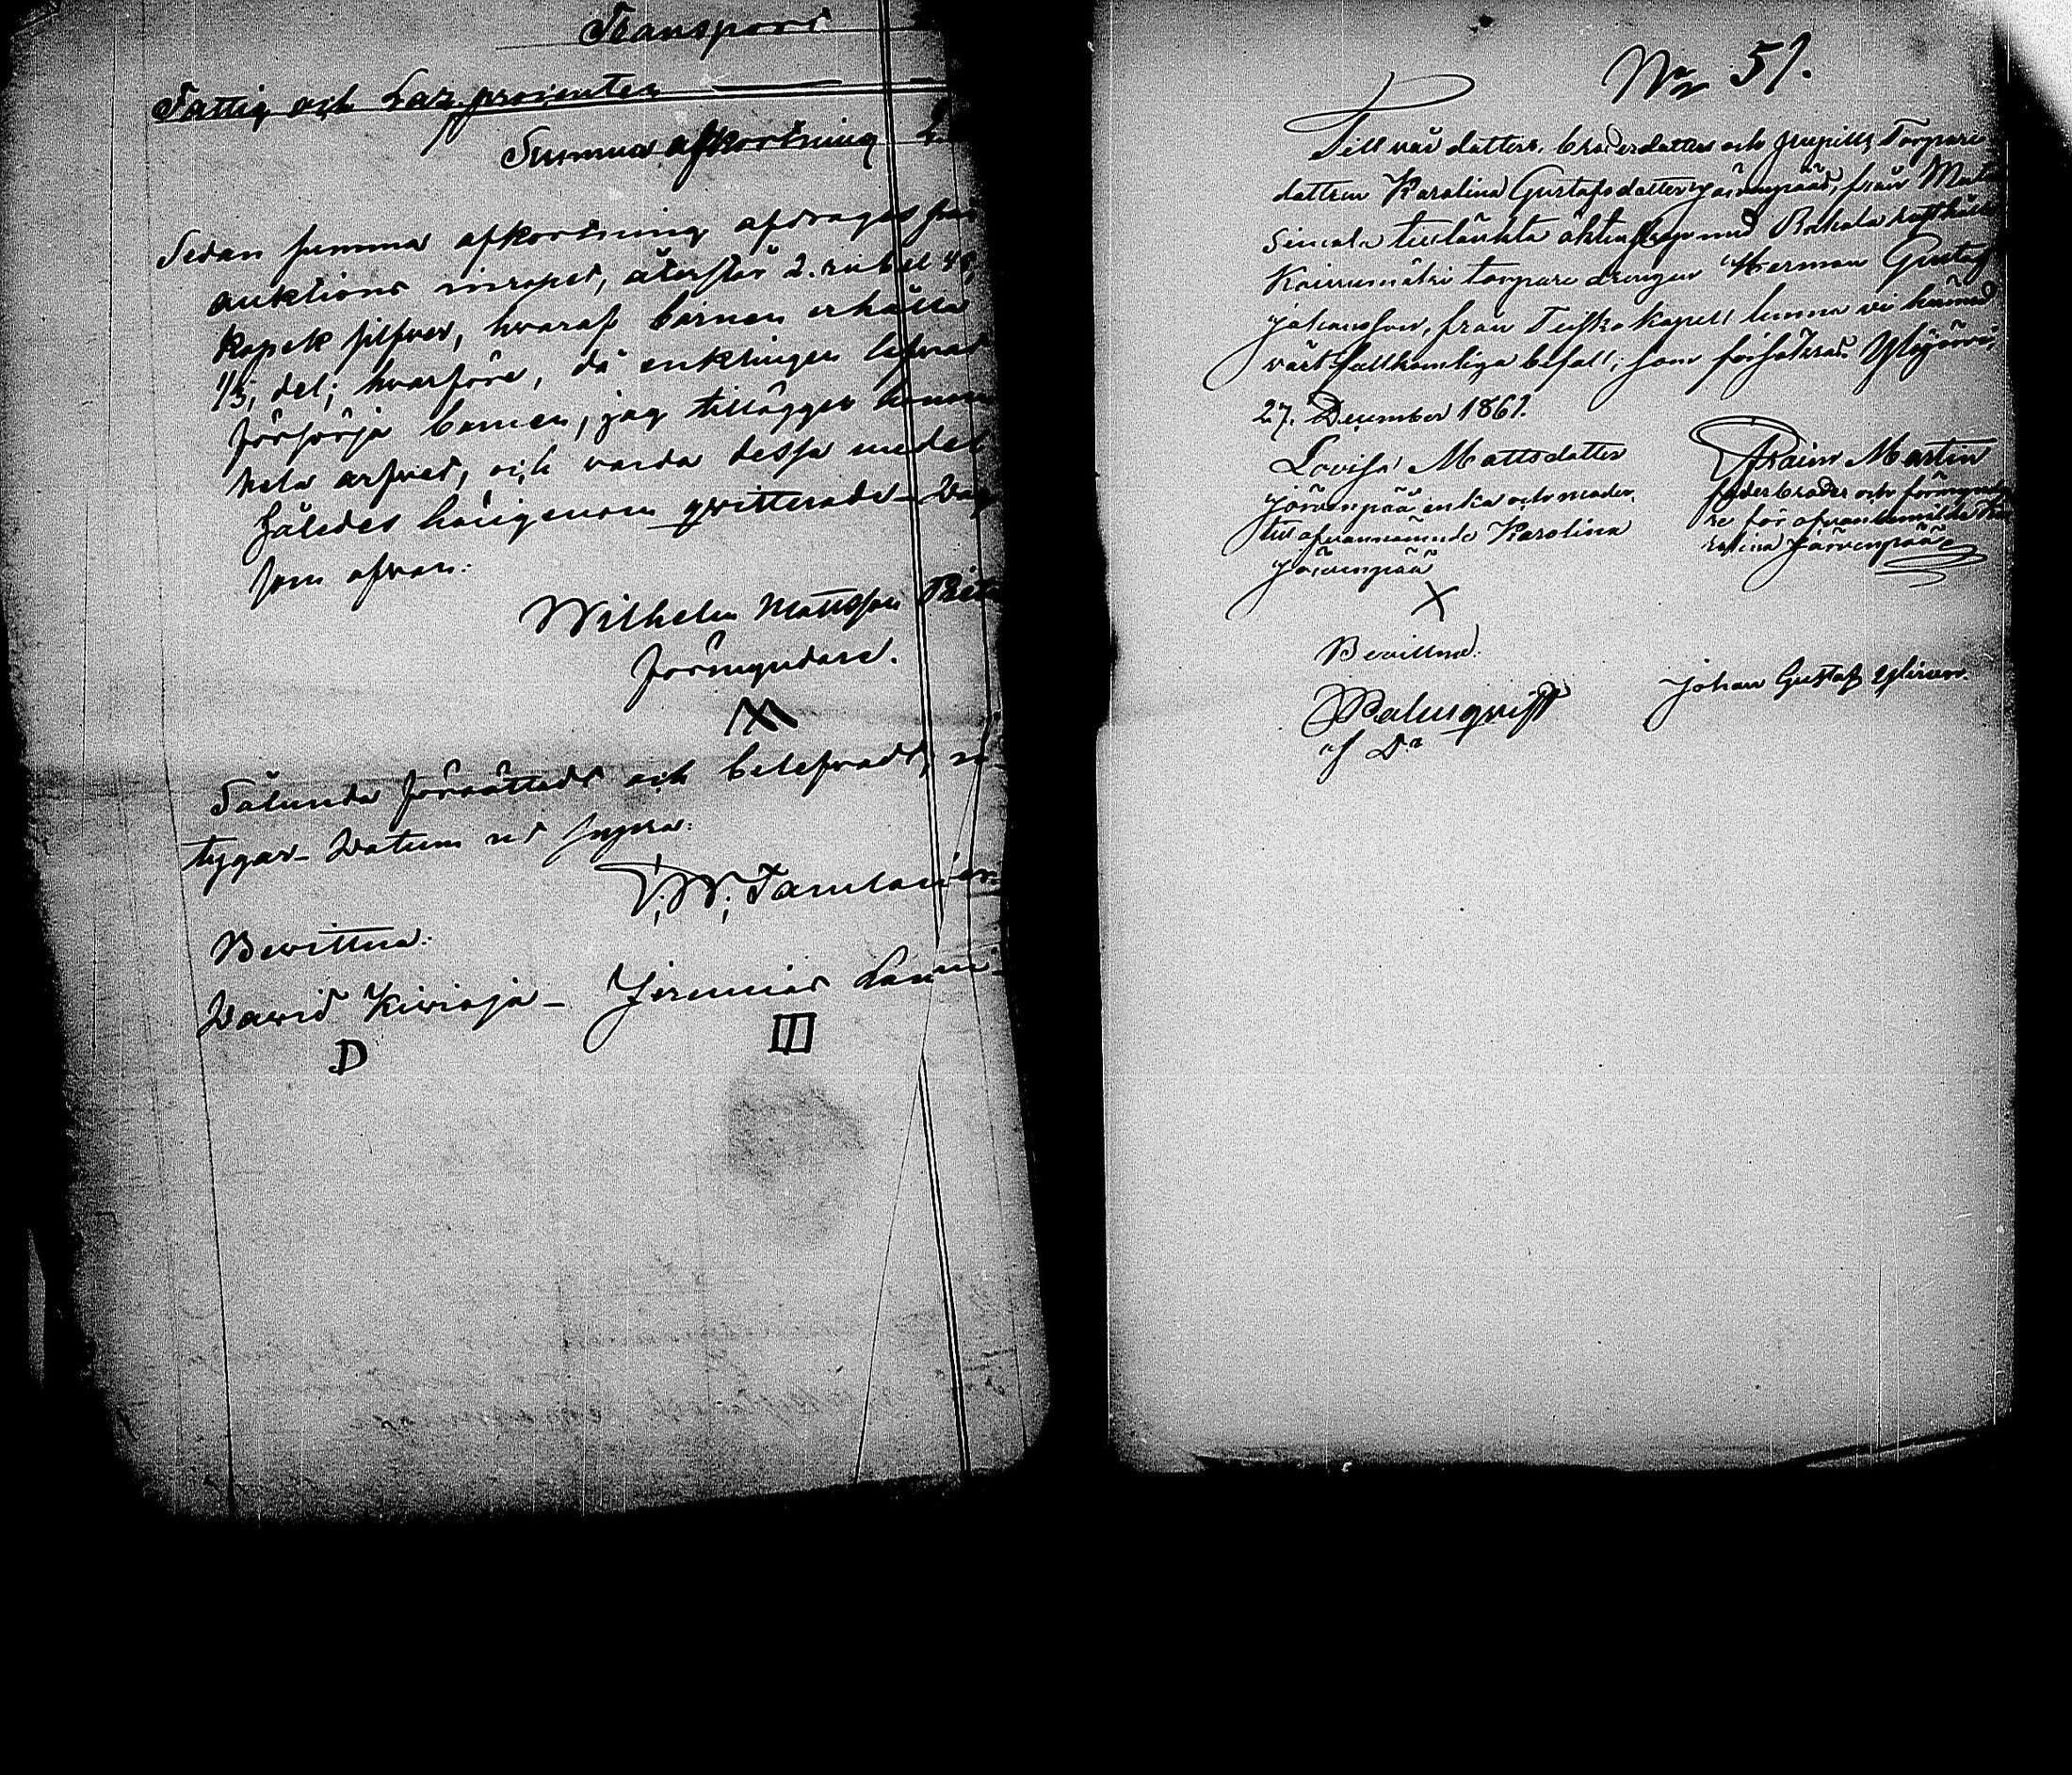 Transport
Fattig och Laz. procenter
Summa afkortning
Sedan summa afkortning afdrages från
auktions inropet, återstår 2. rubel 48,
kopek silfver, hvaraf barnen erhålla
1/3, del; hvarföre, då enklingen lofvat
försörja barnen, jag tillägger honom
hela arfvet, och varda dessa medel
således härigenom qvitterade
som ofvan:
Wilhelm Mattsson
förmyndare.
Sålunda förrättadt och belefvadt,
tygar Datum ut supra:
Bevittna:
David Kivioja – Jeremias
D III
No 51.
Till vår dotters, brorsdotters och pupills Torpare
dottren Karolina Gustafsdotter Järvenpääs, från
tilltänkta äktenskap med
torpare drengen Herman Gustaf
Johansson, från Teisko kapell lemna vi härmed
vårt fullkomliga bifall; som försäkras. Ylöjärvi,
27. December 1861.
Lovisa Mattsdotter
Järvenpää enka och moder
till ofvannämnde Karolina
Järvenpää
X
Efraim Martin
faderbroder och förmynda
re för ofvanbemälde Ka
rolina Järvenpää
Bevittna:
Palmqvist
Johan Gustaf